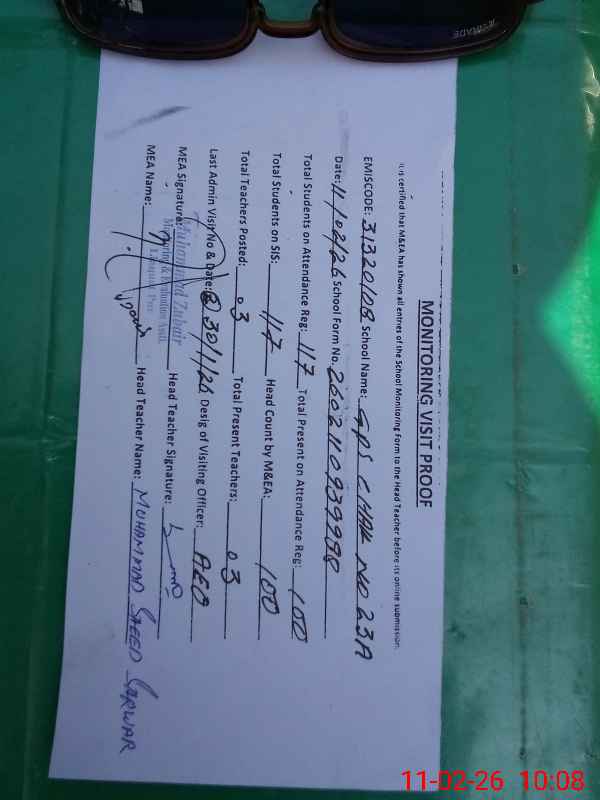 MONITORING VISIT PROOF
It is certified that M&EA has shown all entries of the School Monitoring Form to the Head Teacher before its online submission.
EMISCODE: 31320108 School Name: GPS CHAK NO 23A
Date: 11/02/26 School Form No. 2602110939998
Total Students on Attendance Reg: 117 Total Present on Attendance Reg: 100
Total Students on SIS: 117 Head Count by M&EA: 100
Total Teachers Posted: 03 Total Present Teachers: 03
Last Admin Visit No & Date: 30/1/26 Desig of Visiting Officer: AEO
MEA Signature: Head Teacher Signature:
Muhammad Zubair
Monitoring & Evaluation Asstt.
MEA Name: Head Teacher Name: MUHAMMAD SAEED SARWAR
11-02-26 10:08